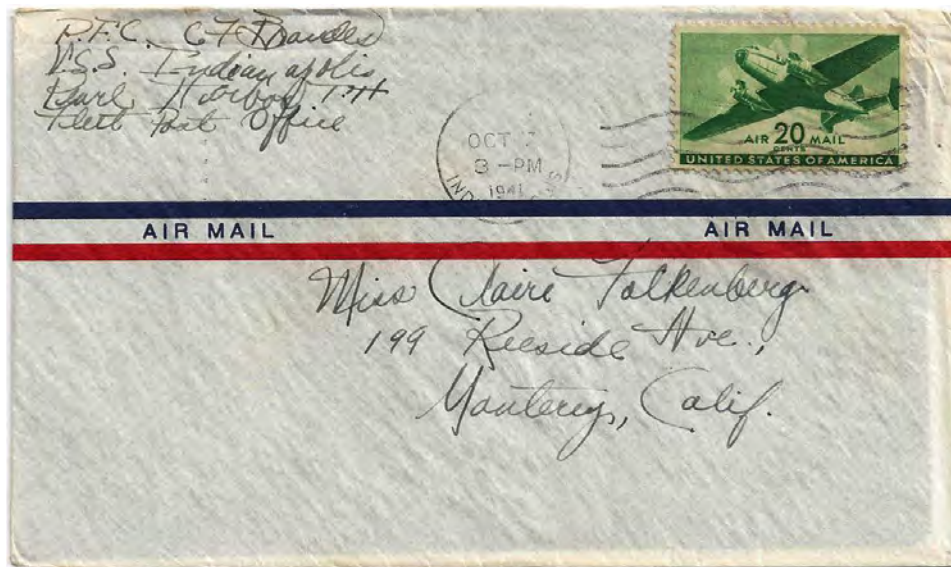 P.F.C. C F
U.S.S. Indianapolis
Pearl Harbor T.H
Fleet Post Office
OCT 7
3 -PM
1941
AIR 20 MAIL
CENTS
UNITED STATES OF AMERICA
AIR MAIL AIR MAIL
Miss Claire Falkenberg
199 Reeside Ave.,
Monterey, Calif.